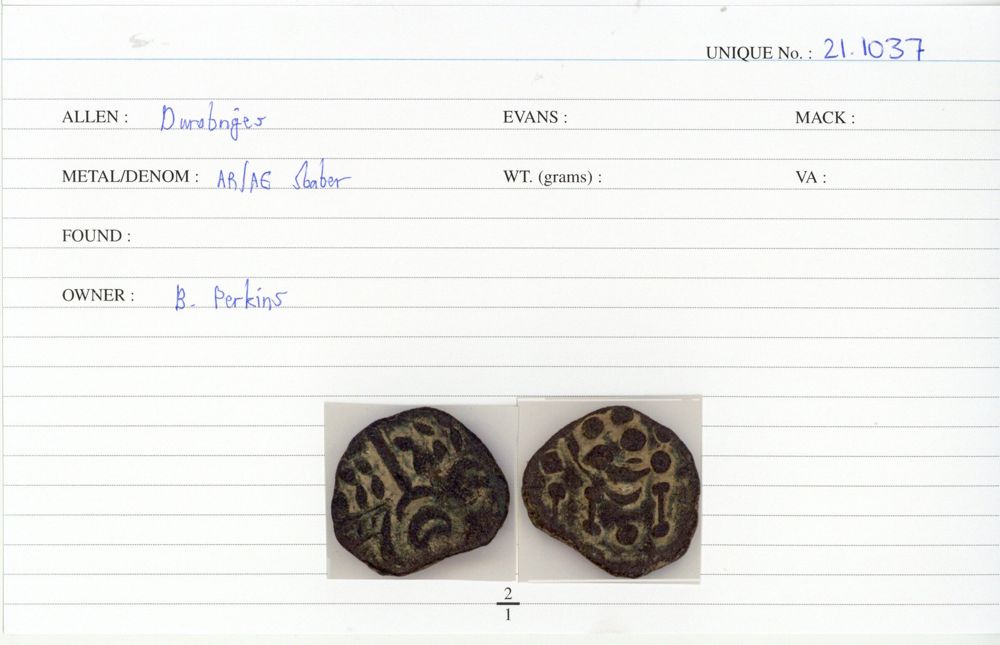 UNIQUE No. : 21.1037
ALLEN : Durobriges EVANS : MACK :
METAL/DENOM : AR/AE WT. (grams) : VA :
FOUND :
OWNER : B. Perkins
2
1